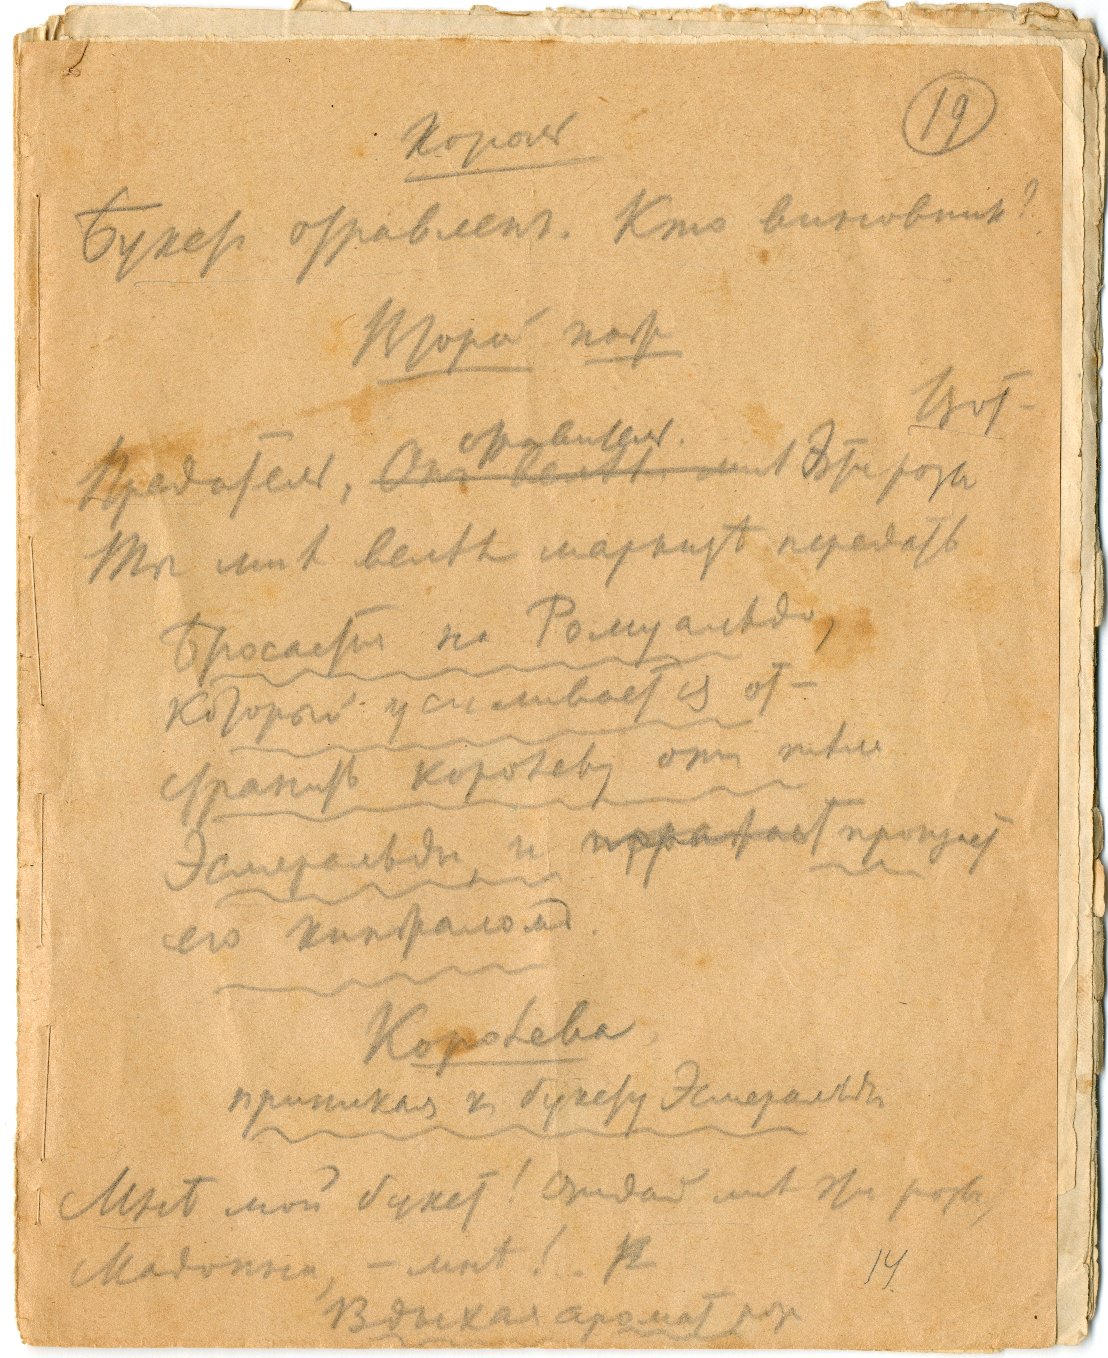 19
Король
Букетъ отравленъ. Кто виновникъ?
Второй пажъ
отравитель.
Предатель, Онъ велѣлъ мнѣ Эти розы
Ты мнѣ велѣлъ маркизѣ передать
Бросается на Ромуальдо,
который усиливается от-
странить королеву отъ тѣла
Эсмеральды и поражаетъ пронзаетъ
его кинжаломъ.
Королева
приникая къ букету Эсмеральды
Мнѣ мой букетъ! Отдай мнѣ эти розы,
Мадонна, – мнѣ!
14
Вдыхая ароматъ розъ